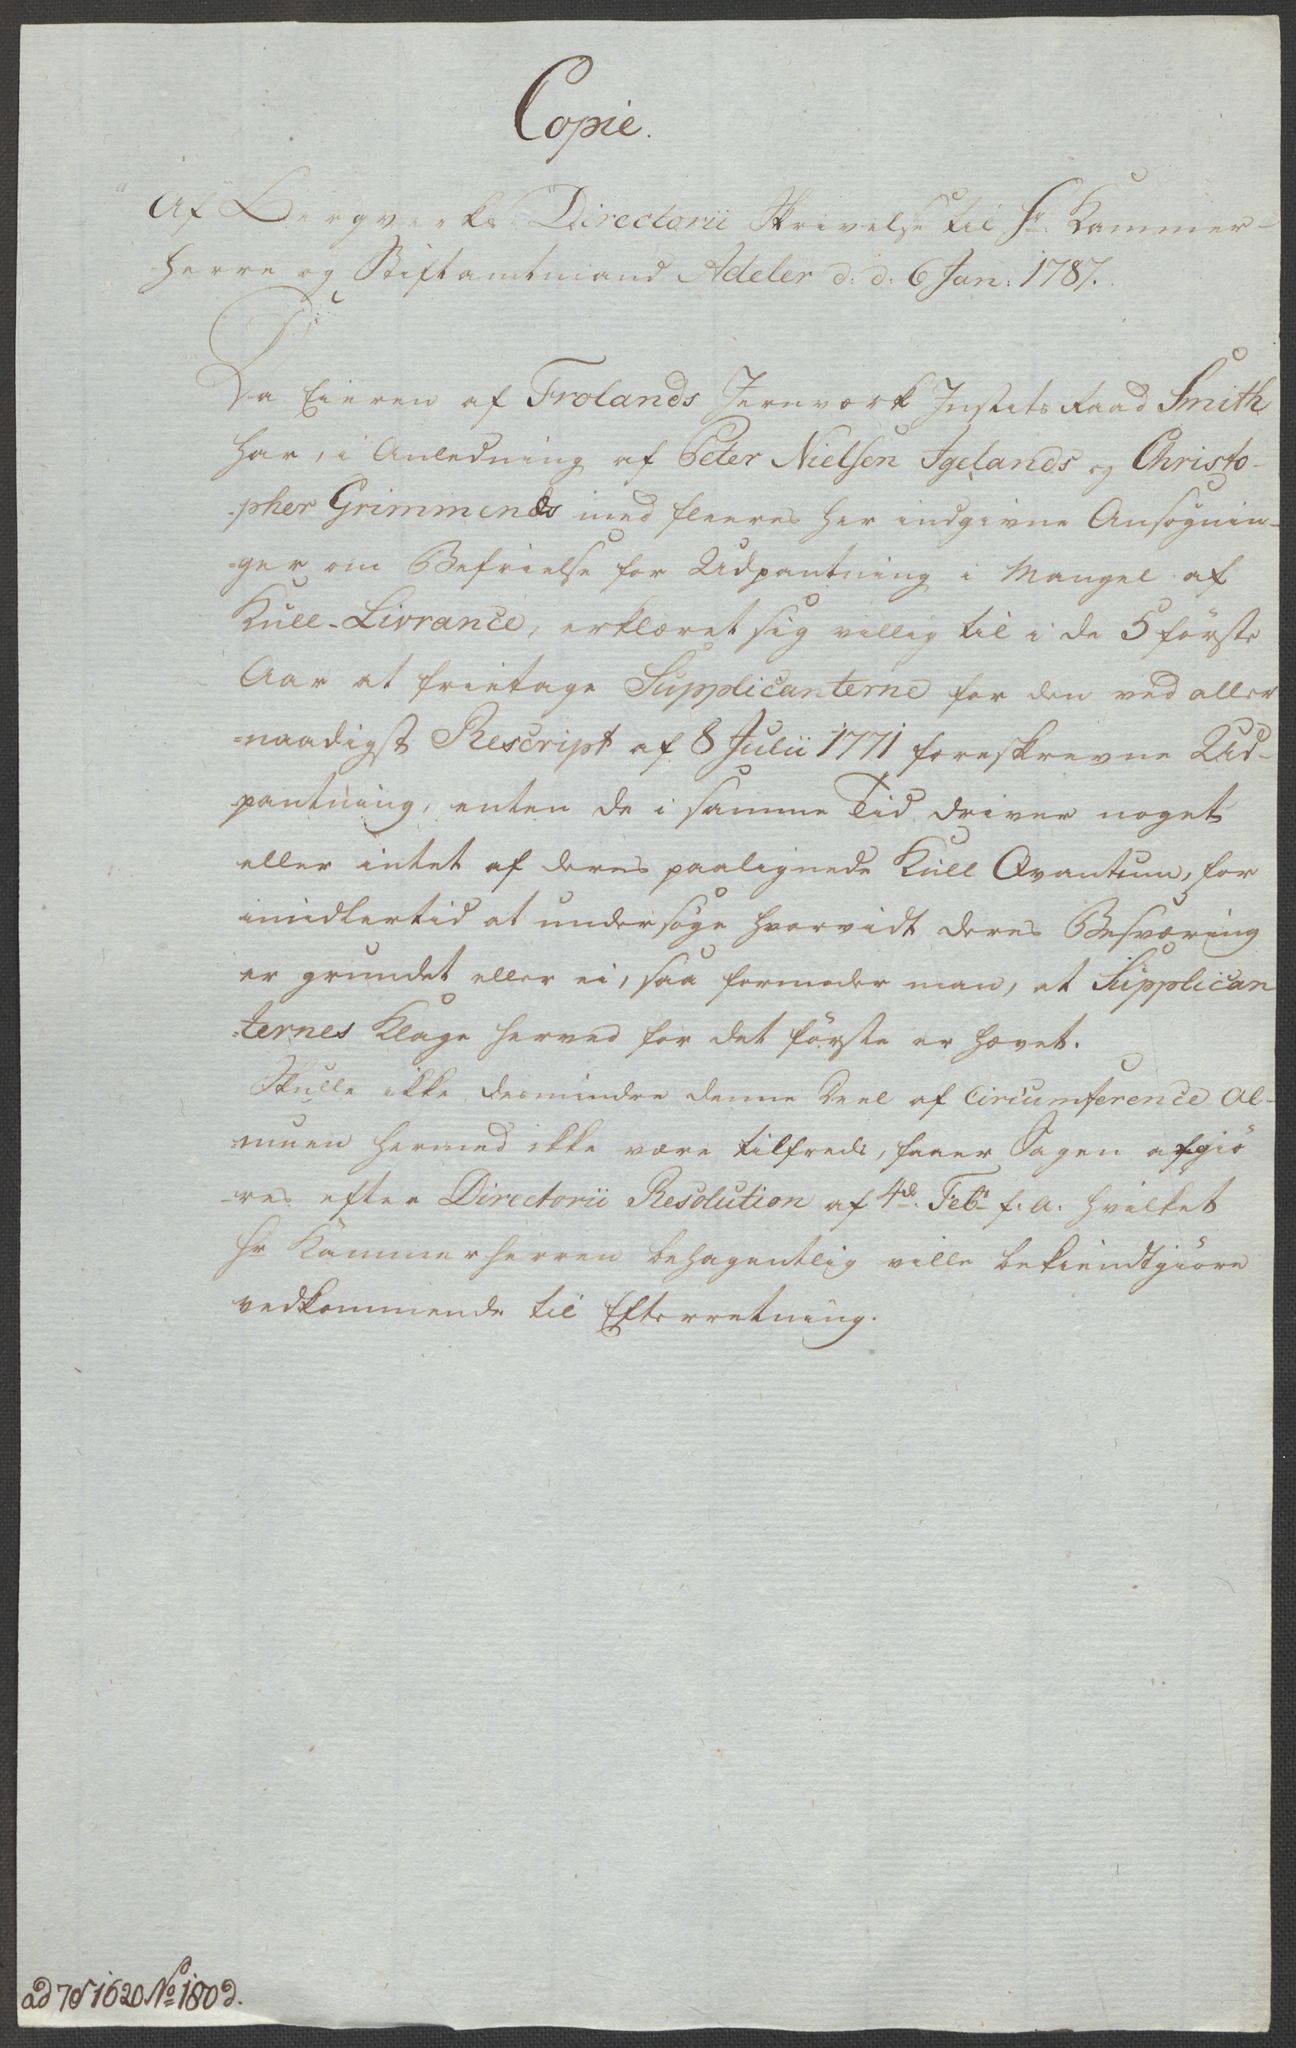 Copie.
Af Bergverks Directorii Skrivelse til Hr. Kammer-
herre og Stiftamtmand Adeler d: d: 6 Jan: 1787.
Da Eieren af Frolands Jernværk Justits Raad Smith
har, i Anledning af Peter Nielsen Igelands og Christo-
-pher Grimmends med fleeres her indgivne Ansøgnin-
-ger om Befrielse for Udpantning i Mangel af
Kull-Livrance, erklæret sig villig til i de 5 förste
Aar at frietage Supplicanterne for den ved aller
-naadigst Rescript af 8 Julii 1771 foreskrevne Ud-
pantning, enten de i samme Tid driver noget
eller intet af deres paalignede Kull Qvantum, for
imidlertid at undersöge hvorvidt deres Besværing
er grundet eller ei, saa formoder man, at Supplican
-ternes Klage herved for det förste er hævet.
Skulle ikke desmindre denne Deel af Circumference Al-
-muen hermed ikke være tilfreds, faaer Sagen afgiö
-res efter Directorii Resolution af 4de Febr f. a. hvilket
Hr Kammerherren behagentlig ville bekiendtgiöre
vedkommende til Efterretning.
ad 1620 No